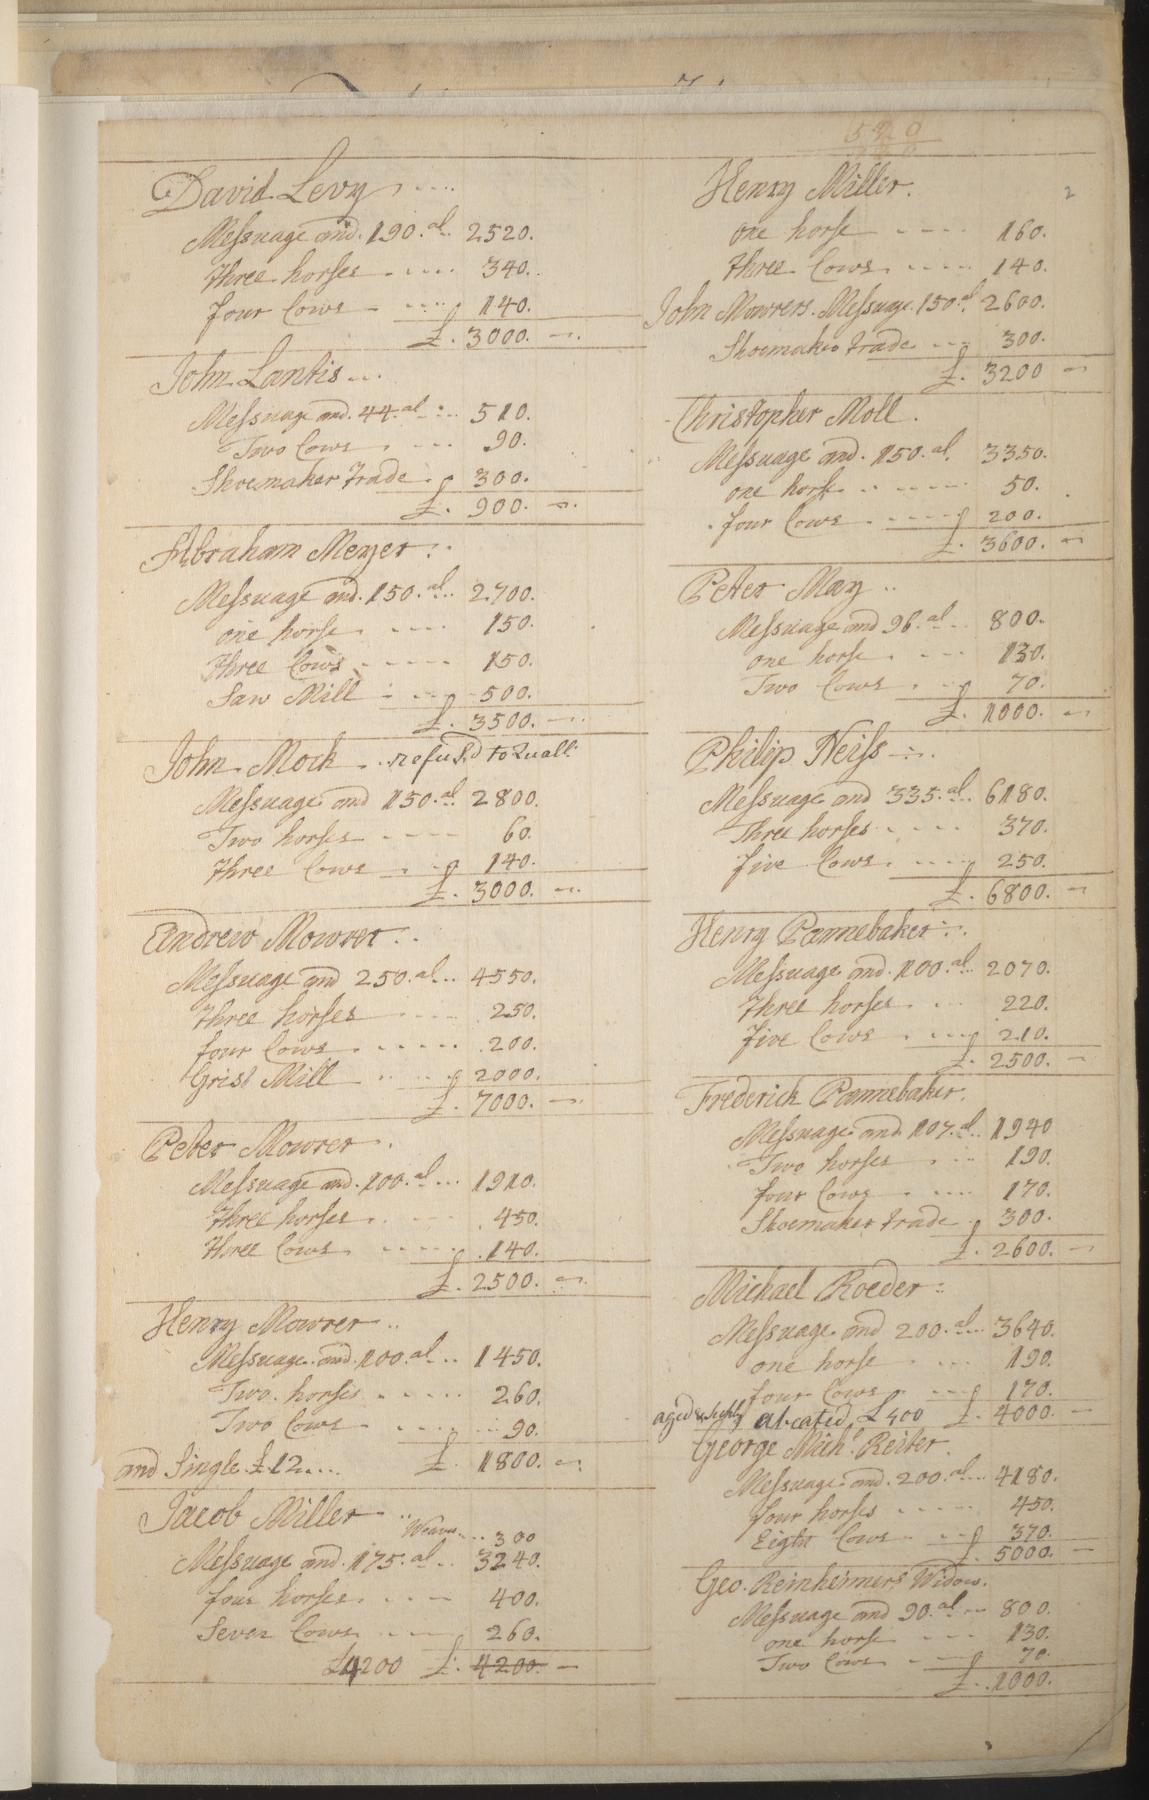 David Levy
Messuage and. 190. al. 2520.
three horses 340.
four Cows 140.
£. 3000.
John Lantis
Messuage and. 44. al 510.
Two Cows 90.
Shoemaker trade 300.
£. 900.
Abraham Meyer
Messuage and. 150. al. 2700.
one horse 150.
three Cows 150.
Saw Mill 500.
£. 3500.
John Mock refused to Quall:
Messuage and 150. al. 2800.
Two horses 60.
three Cows 140.
£. 3000.
Andrew Mowrer
Messuage and 250. al. 4550.
three horses 250.
four Cows 200.
Grist Mill 2000.
£. 7000.
Peter Mowrer
Messuage and. 100. al 1910.
three horses 450.
three Cows 140.
£. 2500.
Henry Mowrer
Messuage and 100. al 1450.
Two horses 260.
Two Cows 90.
and Single £12 £. 1800.
Jacob Miller
Weaver 300
Messuage and. 175. al. 3240.
four horses 400.
Seven Cows 260.
£4200 £. 4200.
520
2
Henry Miller.
one horse 160.
three Cows 140.
John Mowrers. Messuage. 150. al 2600.
Shoemaker trade 300.
£. 3200
Christopher Moll.
Messuage and. 150. al. 3350.
one horse 50.
four Cows 200.
£. 3600.
Peter May
Messuage and 96. al. 800.
one horse 130.
Two Cows 70.
£. 1000.
Philip Neiss
Messuage and 335. al. 6180.
Three horses 370.
five Cows 250.
£. 6800.
Henry Pannebaker
Messuage and. 100. al. 2070.
three horses 220.
five Cows 210.
£. 2500.
Frederick Pannebaker.
Messuage and 107. al. 1940
Two horses 190.
four Cows 170.
Shoemaker trade 300.
£. 2600.
Michael Roeder
Messuage and 200. al. 3640.
one horse 190.
four Cows 170.
aged & abcated £400 £. 4000.
George Michl. Reiter.
Messuage and. 200. al 4180.
four horses 450.
Eight Cows 370.
£. 5000.
Geo. Reinheimers Widow.
Messuage and 90. al 800.
one horse 130.
Two Cows 70.
£. 1000.